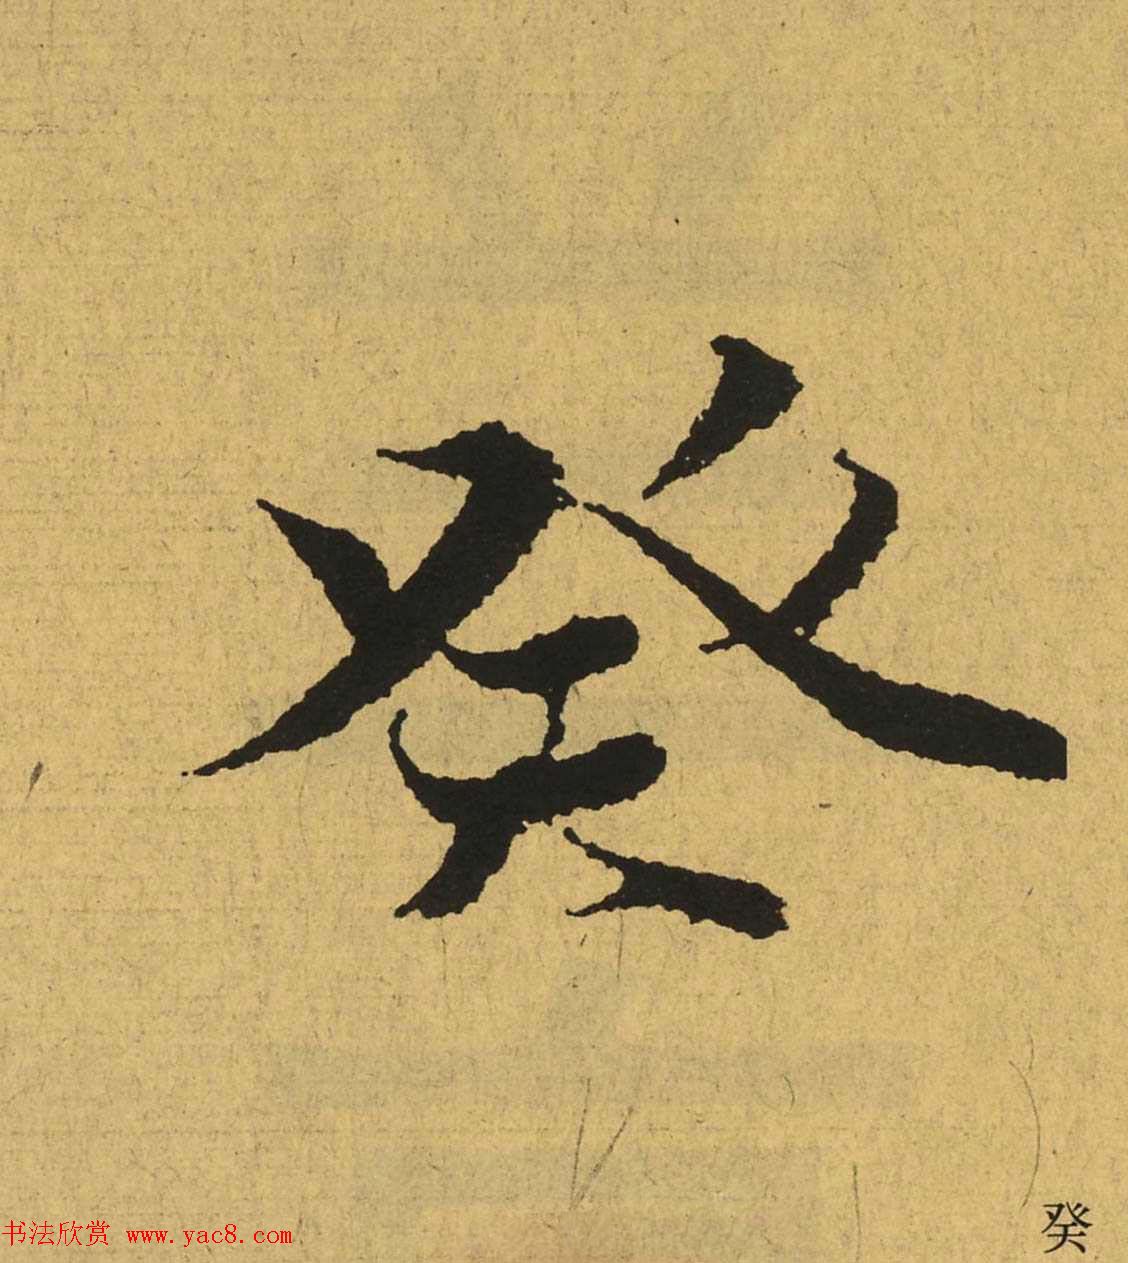 癸
书法欣赏 www.yac8.com
癸